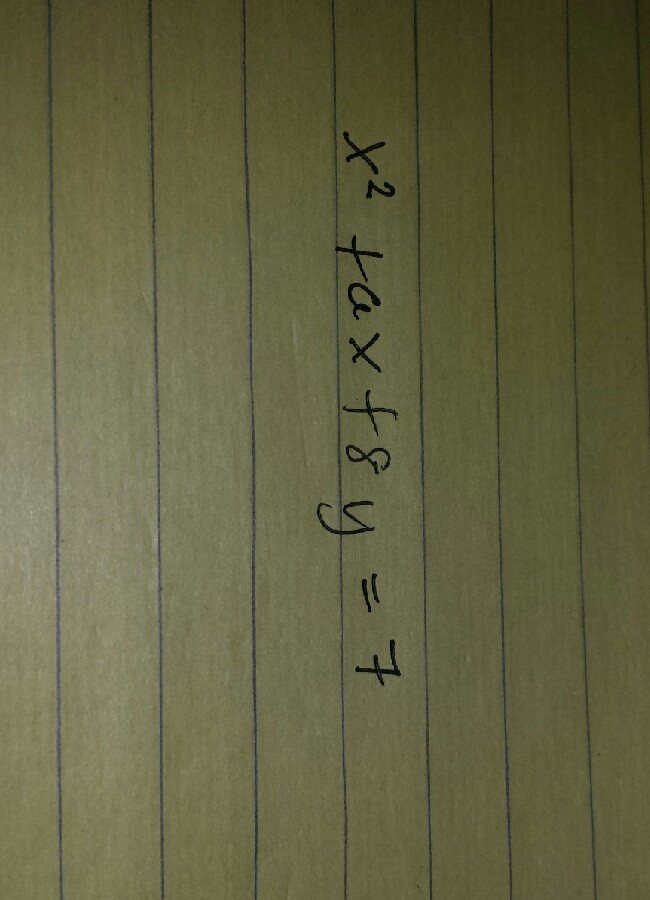 x² + ax + 8y = 7